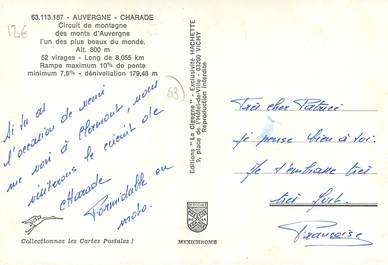 12€
63.113.187 - AUVERGNE - CHARADE
Circuit de montagne
des monts d'Auvergne
l'un des plus beaux du monde.
Alt. 800 m
52 virages - Long de 8,055 km
Rampe maximum 10% de pente
minimum 7,8% - dénivellation 179,48 m
Si tu as
l'occasion de venir
me voir à Clermont, nous
visiterons le circuit de
Charade
Formidable en
moto.
Collectionnez les Cartes Postales !
63
Editions "La Cigogne" - Exclusivité HACHETTE
9, place de l'Hôtel-de-Ville - 03200 VICHY
Reproduction interdite
MEXICHROME
Très cher Patrice
je pense bien à toi.
Je t'embrasse très
très fort.
Françoise